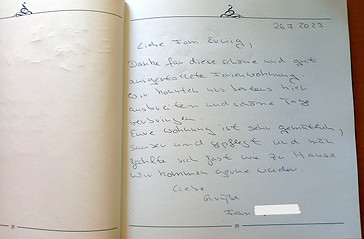 26.7.2023
Liebe Fam
Danke für diese schöne und gut
ausgestattete Ferienwohnung
Wir konnten uns bestens hier
ausbreiten und schöne Tage
verbringen
Eure Wohnung ist sehr gemütlich,
sauber und gepflegt und man
fühlte sich fast wie zu Hause
Wir kommen gerne wieder
Liebe
Grüße
Fam
38
39